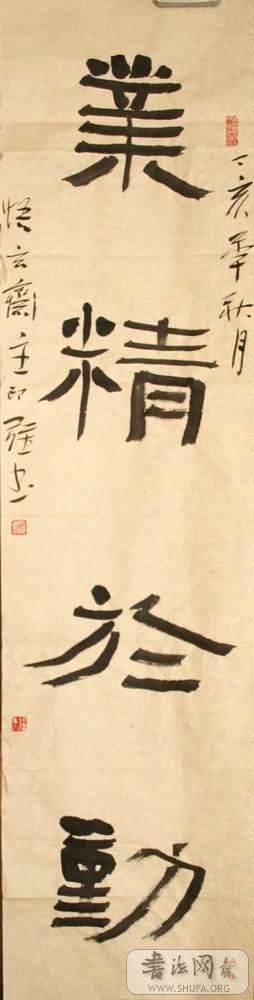 丁亥年秋月
業精於勤
悟玄齋主印强书
書法网
WWW.SHUFA.ORG